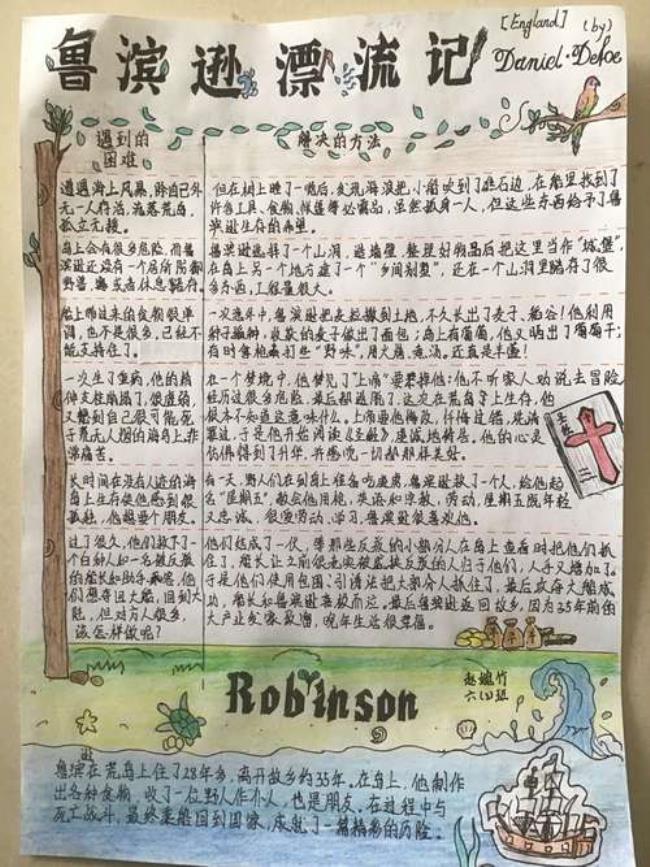 鲁滨逊漂流记
[England]
(by)
Daniel·Defoe
遇到的
困难
解决的方法
遭遇海上风暴,除自己外
无一人存活,流落荒岛,
孤立无援。
但在树上睡了一晚后,发现海浪把小船吹到了礁石边,在船里找到了
许多工具、食物、帐篷等必需品,虽然孤身一人,但这些东西给予了鲁
滨逊生存的希望。
岛上会有很多危险,而鲁
滨逊还没有一个居所防御
野兽,或者休息储存。
鲁滨逊选择了一个山洞,造墙壁,整理好物品后把这里当作“城堡”,
在岛上另一个地方建了一个“乡间别墅”,还在一个山洞里储存了很
多东西,工程量很大。
船上带过来的食物很单
调,也不是很多,已经不
能支持住了。
一次意外中,鲁滨逊把麦粒撒到土地,不久长出了麦子、稻谷!他利用
种子,收获的麦子做出了面包;岛上有葡萄,他又晒出了葡萄干;
有时拿枪打些“野味”,用火煮汤。还真是丰盛!
一次生了重病,他的精
神支柱崩塌了,很虚弱,
又想到自己很可能死
于荒无人烟的海岛上,非
常痛苦。
在一个梦境中,他梦见了“上帝”要惩掉他:他不听家人劝说去冒险
经历过很多危险,最后都逃脱了,这次在荒岛上生存,他
根本不知道这意味什么。上帝要他悔改,忏悔过错,洗清
罪过,于是他开始阅读《圣经》,虔诚地祷告。他的心灵
仿佛得到了升华,并感觉一切都那样美好。
圣经
长时间在没有人迹的海
岛上生存使他感到很
孤独,他想要个朋友。
有一天,野人们在到岛上准备吃俘虏,鲁滨逊救了一个人,给他起
名“星期五”,教会他用枪,英语和宗教,劳动,星期五既年轻
又忠诚,很爱劳动、学习,鲁滨逊很喜欢他。
过了很久,他们救下了一
个白种人和一名被反叛
的船长和助手,他
们想夺回大船,回到大
陆,但对方人很多,
该怎样做呢?
他们结成了一伙,等那些反叛的小部分人在岛上查看时把他们抓
住了,船长让之前很忠实被逼反叛的人归于他们,人手又增加了。
于是他们使用包围、引诱法把大部分人抓住了,最后放夺大船成
功,船长和鲁滨逊喜极而泣。最后鲁滨逊返回故乡,因为35年前的
大产业发家致富,晚年生活很幸福。
Robinson
六(1)班
逊
鲁滨在荒岛上住了28年多,离开故乡约35年。在岛上,他制作
出各种食物,收了一位野人作仆人,也是朋友。在过程中与
死亡战斗,最终乘船回到国家,成就了一篇精彩的历险。